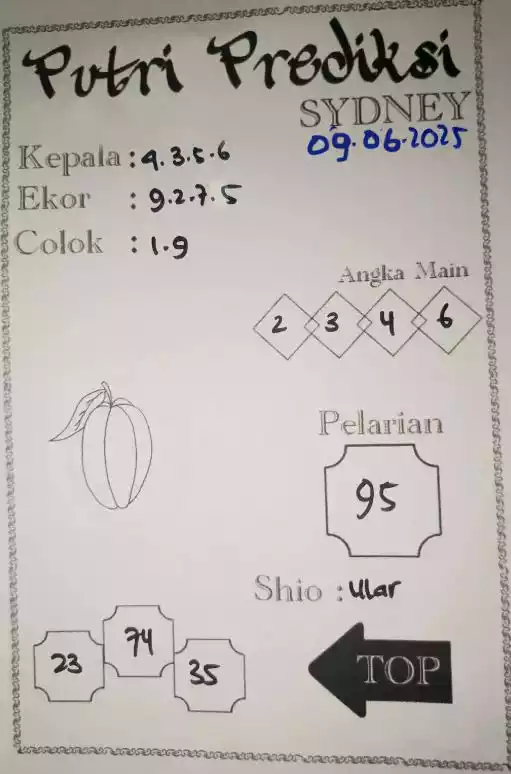 Putri Prediksi
SYDNEY
09.06.2025
Kepala : 9.3.5.6
Ekor : 9.2.7.5
Colok : 1.9
Angka Main
2 3 4 6
Pelarian
95
Shio : Ular
23 74 35
TOP